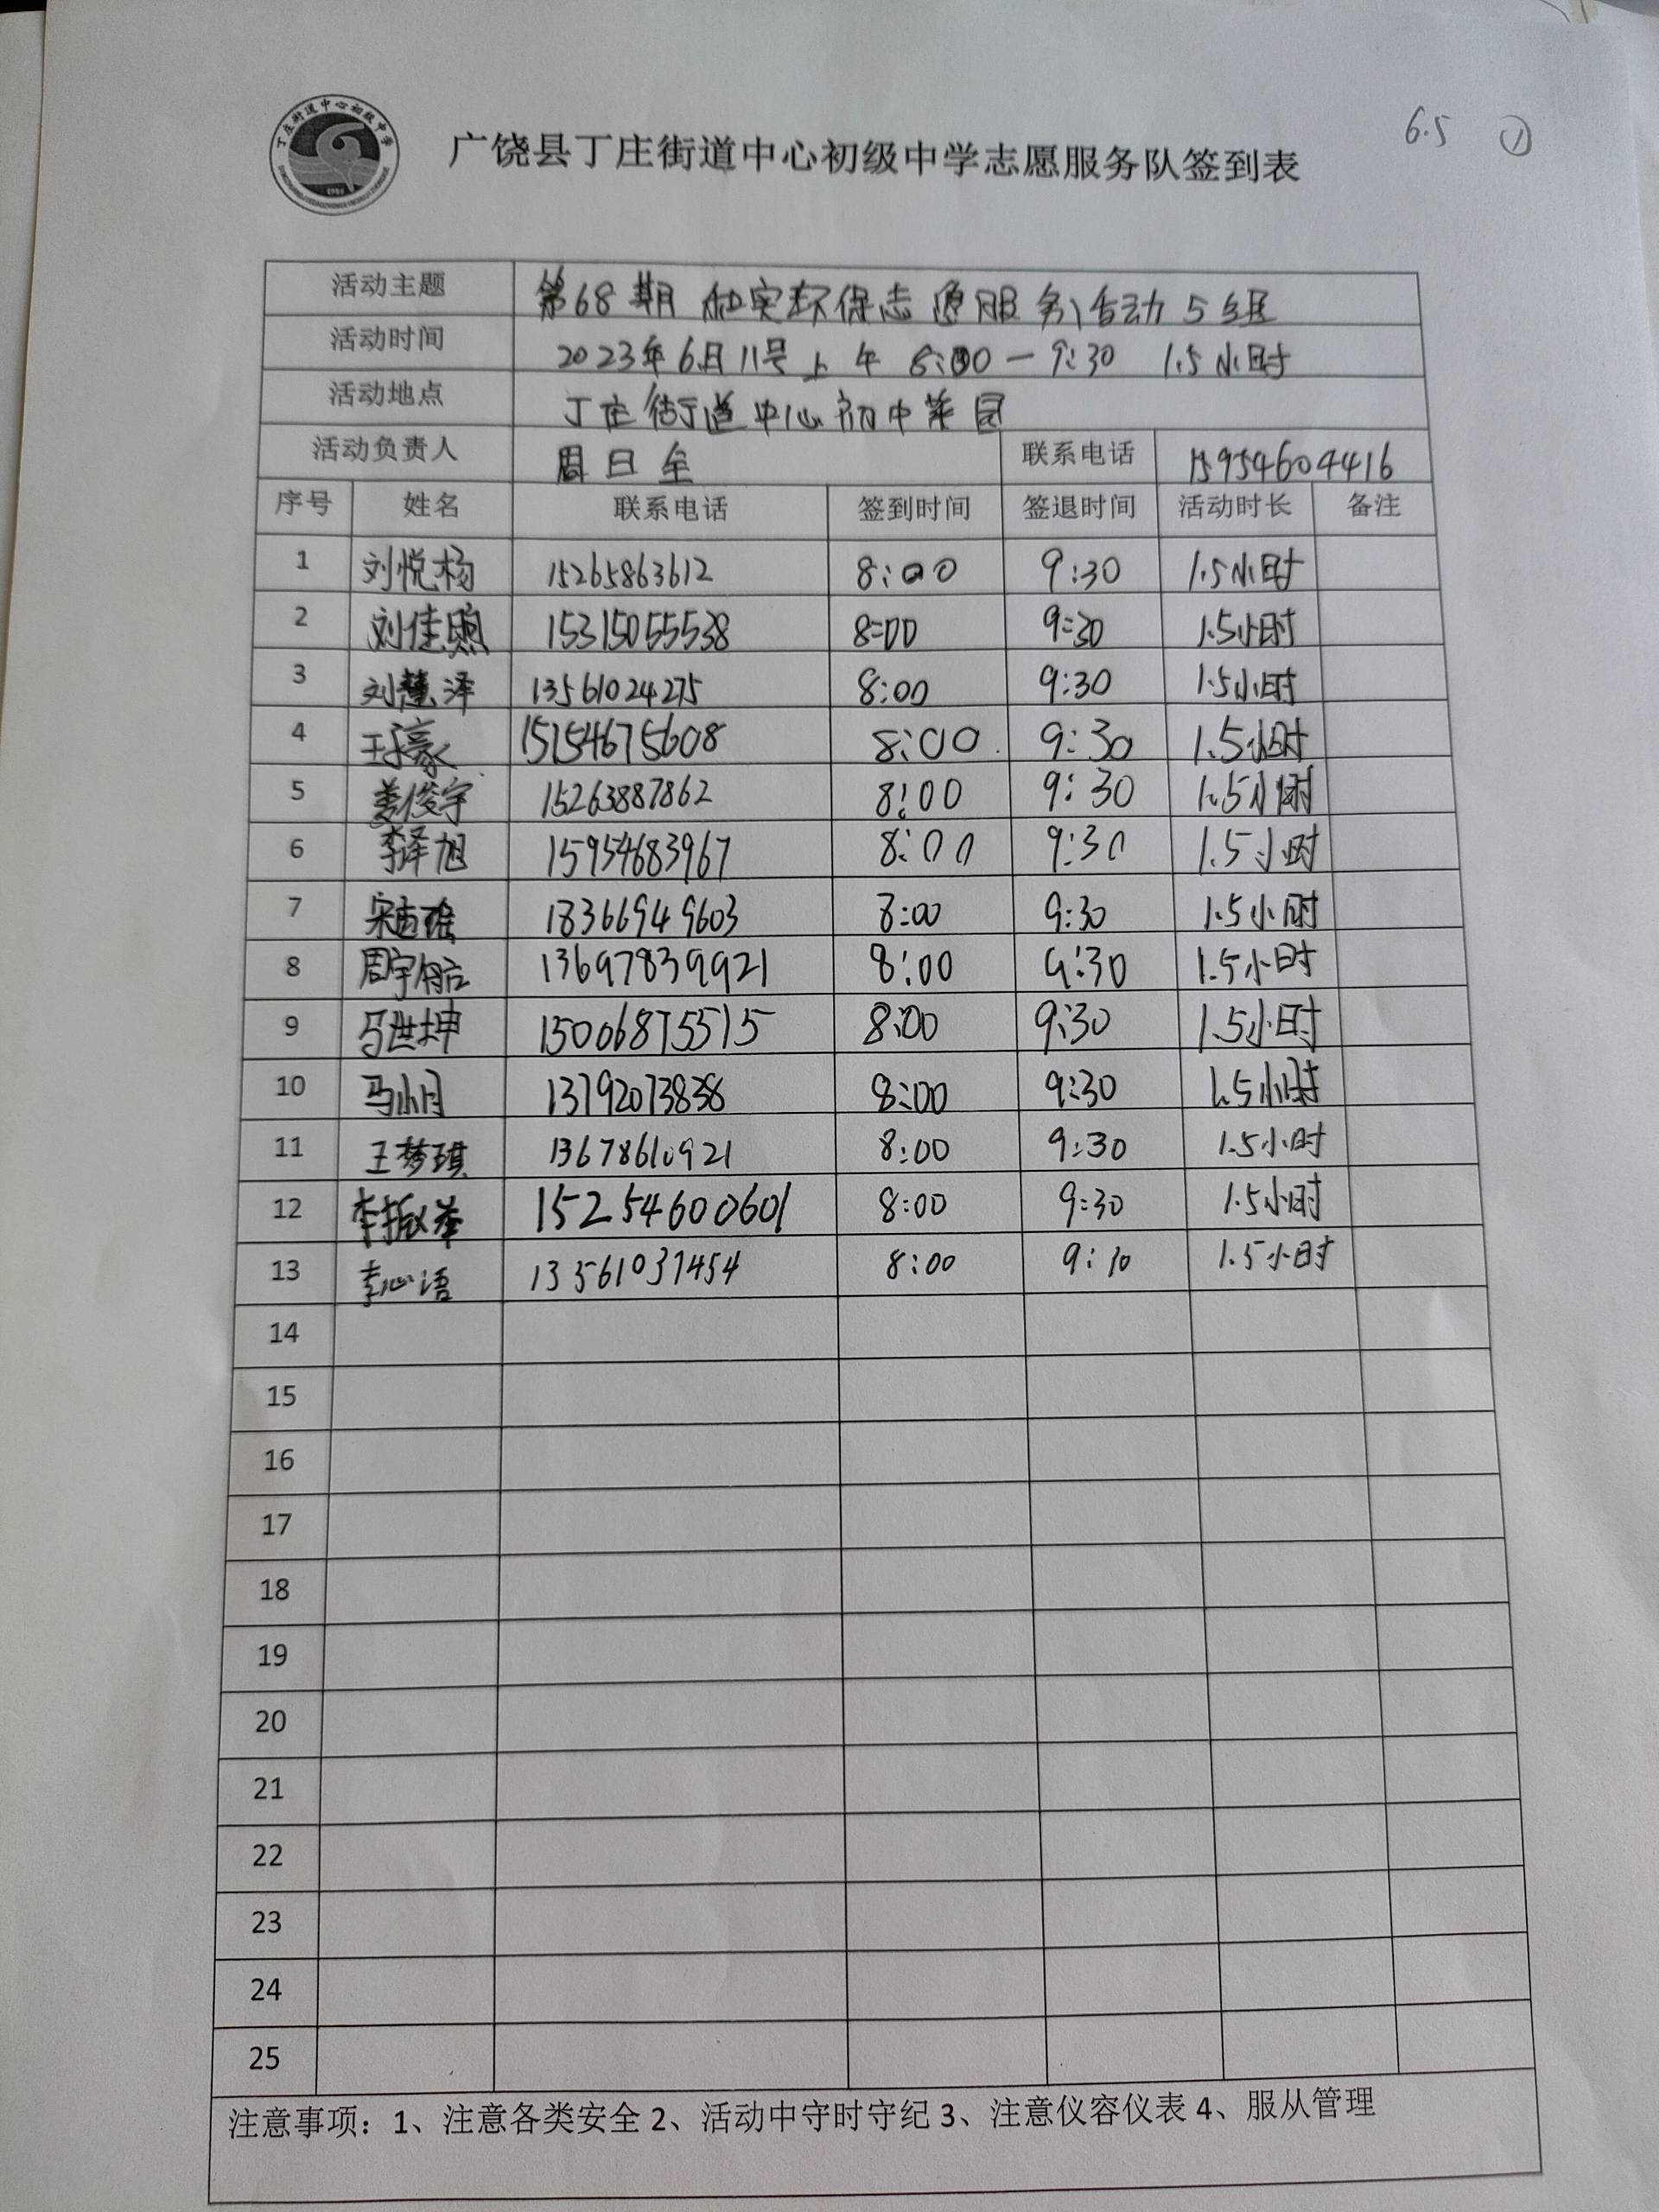 丁庄街道中心初级中学
广饶县丁庄街道中心初级中学志愿服务队签到表
6.5 ①
活动主题 第68期 和实环保志愿服务活动5组
活动时间 2023年6月11号上午 8:00一9:30 1.5小时
活动地点 丁庄街道中心初中菜园
活动负责人 周日全 联系电话 15954604416
序号 姓名 联系电话 签到时间 签退时间 活动时长 备注
1 刘悦杨 15265863612 8:00 9:30 1.5小时
2 刘佳煦 15315055538 8:00 9:30 1.5小时
3 刘慧泽 13561024275 8:00 9:30 1.5小时
4 王子豪 15154675608 8:00 9:30 1.5小时
5 姜俊宇 15263887862 8:00 9:30 1.5小时
6 李泽旭 15954683967 8:00 9:30 1.5小时
7 18366949603 8:00 9:30 1.5小时
8 周宇航 13697839921 8:00 9:30 1.5小时
9 马世坤 15006875515 8:00 9:30 1.5小时
10 马小月 13792073838 8:00 9:30 1.5小时
11 王梦琪 13678610921 8:00 9:30 1.5小时
12 15254600601 8:00 9:30 1.5小时
13 李心语 13561037454 8:00 9:30 1.5小时
14
15
16
17
18
19
20
21
22
23
24
25
注意事项：1、注意各类安全 2、活动中守时守纪 3、注意仪容仪表 4、服从管理